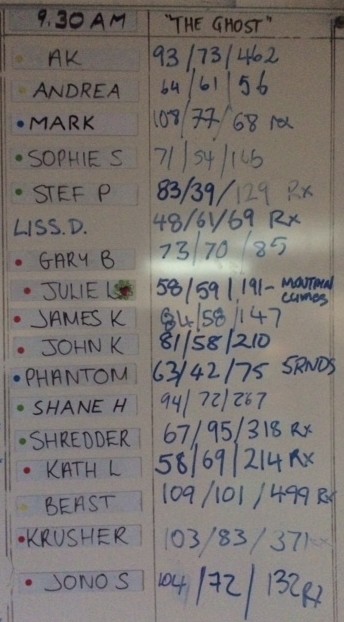 9.30 AM "THE GHOST"
AK 93/73/462
ANDREA 64/61/56
MARK 108/77/68 RX
SOPHIE S 71/54/145
STEF P 83/39/129 Rx
LISS.D. 48/61/69 Rx
GARY B 73/70/85
JULIE L 58/59/191- MOUNTAIN CLIMBS
JAMES K 84/58/147
JOHN K 81/58/210
PHANTOM 63/42/75 5RNDS
SHANE H 94/72/267
SHREDDER 67/95/318 Rx
KATH L 58/69/214 Rx
BEAST 109/101/499 Rx
KRUSHER 103/83/371
JONO S 104/72/132 Rx